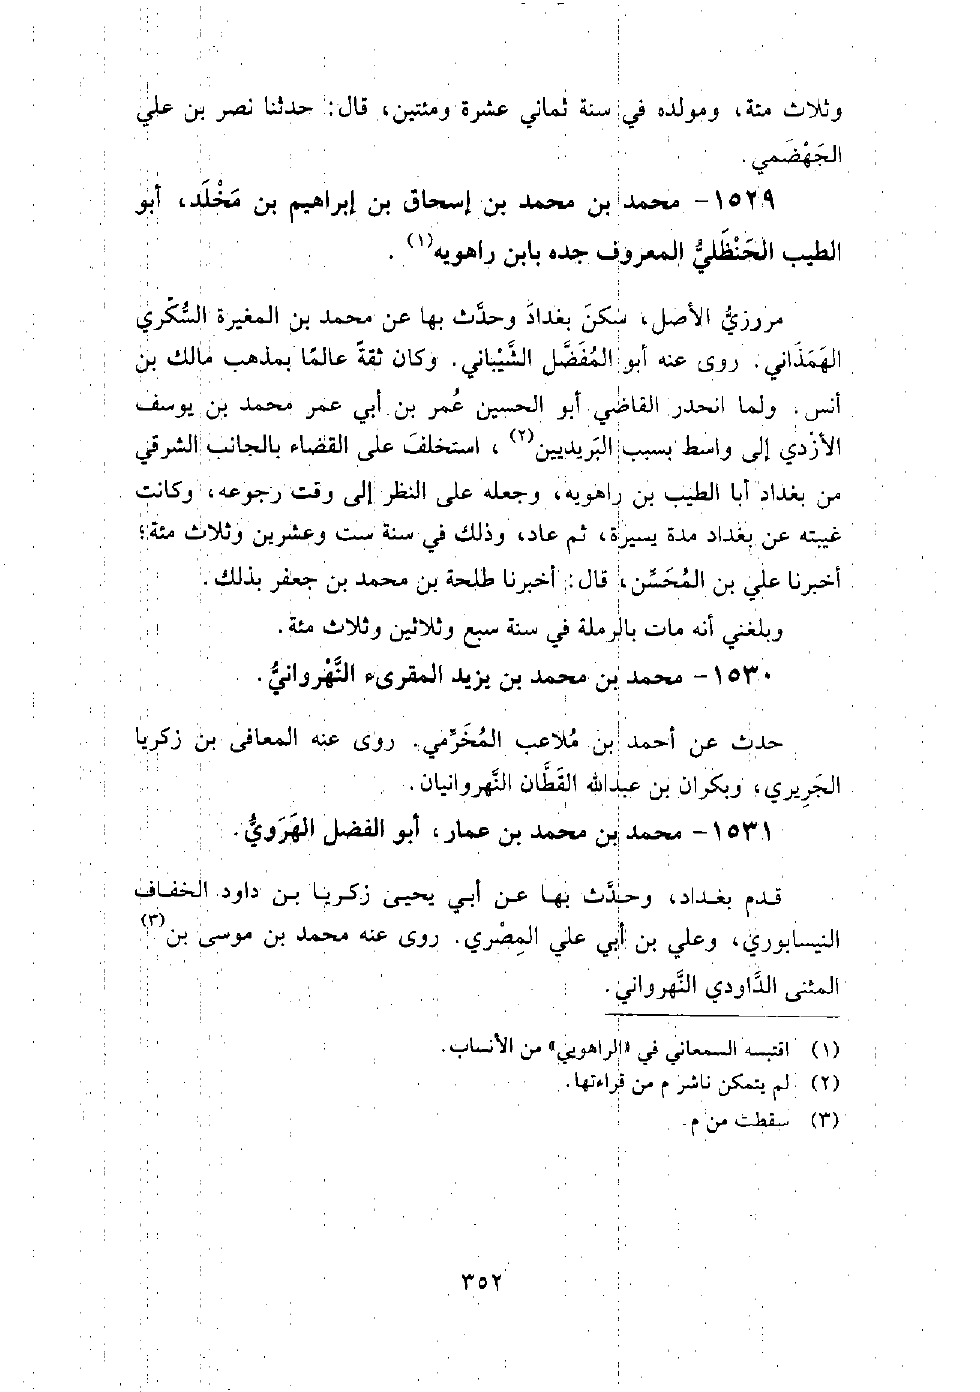 وثلاث مئة، ومولده في سنة ثماني عشرة ومئتين، قال: حدثنا نصر بن علي
الجَهْضَمي.
١٥٢٩- محمد بن محمد بن إسحاق بن إبراهيم بن مَخْلَد، أبو
الطيب الحَنْظَليُّ المعروف جده بابن راهويه(١) .
مروزيُّ الأصل، سكنَ بغدادَ وحدَّث بها عن محمد بن المغيرة السُّكري
الهَمَذاني. روى عنه أبو المُفَضَّل الشَّيْباني. وكان ثقةً عالمًا بمذهب مالك بن
أنس. ولما انحدر القاضي أبو الحسين عُمر بن أبي عمر محمد بن يوسف
الأزْدي إلى واسط بسبب البَريديين(٢) ، استخلفَ على القضاء بالجانب الشرقي
من بغداد أبا الطيب بن راهويه، وجعله على النظر إلى وقت رجوعه، وكانت
غيبته عن بغداد مدة يسيرة، ثم عاد، وذلك في سنة ست وعشرين وثلاث مئة؛
أخبرنا علي بن المُحَسِّن، قال: أخبرنا طلحة بن محمد بن جعفر بذلك.
وبلغني أنه مات بالرملة في سنة سبع وثلاثين وثلاث مئة.
١٥٣٠- محمد بن محمد بن يزيد المقرىء النَّهْروانيُّ.
حدث عن أحمد بن مُلاعب المُخَرِّمي. روى عنه المعافى بن زكريا
الجَرِيري، وبكران بن عبدالله القَطَّان النَّهروانيان.
١٥٣١- محمد بن محمد بن عمار، أبو الفضل الهَرَويُّ.
قدم بغداد، وحدَّث بها عن أبي يحيى زكريا بن داود الخفاف
النيسابوري، وعلي بن أبي علي المِصْري. روى عنه محمد بن موسى بن(٣)
المثنى الدَّاودي النَّهرواني.
(١) اقتبسه السمعاني في «الراهويي» من الأنساب.
(٢) لم يتمكن ناشر م من قراءتها.
(٣) سقطت من م.
٣٥٢